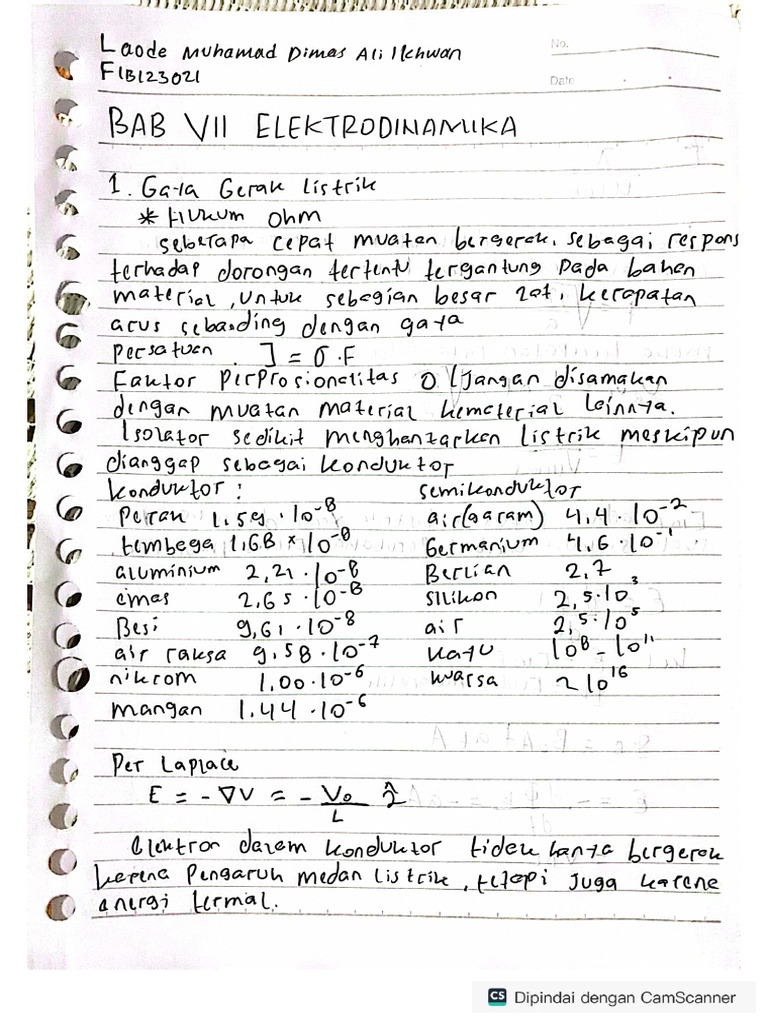 Laode Muhamad Dimas Ali Ilkhwan
F1B123021
No.
Date
BAB VII ELEKTRODINAMIKA
1. Gaya Gerak Listrik
* Hukum Ohm
seberapa cepat muatan bergerak, sebagai respons
terhadap dorongan tertentu tergantung pada bahan
material, untuk sebagian besar zat, kerapatan
arus sebanding dengan gaya
persatuan J = σ.F
Faktor perprosionalitas σ (Jangan disamakan
dengan muatan material kematerial lainnya.
Isolator sedikit menghantarkan listrik meskipun
dianggap sebagai konduktor
konduktor : semikonduktor
Perak 1.59 · 10⁻⁸ air(garam) 4,4 · 10⁻²
tembaga 1,68 × 10⁻⁸ Germanium 4,6 · 10⁻¹
aluminium 2,21 · 10⁻⁸ Berlian 2,7
emas 2,65 · 10⁻⁸ silikon 2,5·10³
Besi 9,61 · 10⁻⁸ air 2,5·10⁵
air raksa 9,58 · 10⁻⁷ kayu 10⁸ - 10¹¹
nikrom 1,00 · 10⁻⁶ kuarsa 2 10¹⁶
mangan 1,44 · 10⁻⁶
Per Laplace
E = -∇V = - V₀/L ẑ
Elektron dalam konduktor tidak hanya bergerak
karena pengaruh medan listrik, tetapi juga karena
energi termal.
CS Dipindai dengan CamScanner